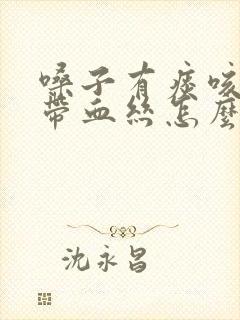 嗓子有痰咳
带血丝怎麼
沈永昌